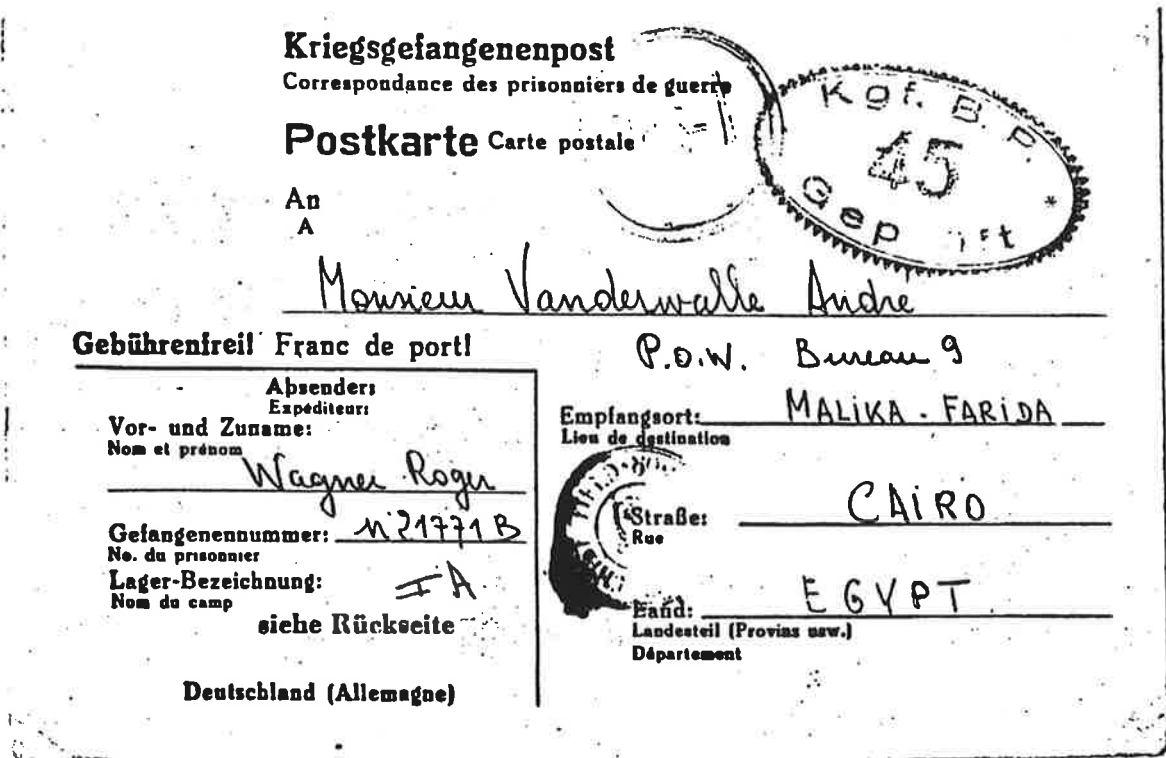 Kriegsgefangenenpost
Correspondance des prisonniers de guerre
Postkarte Carte postale
Kgf. B. P.
45
Gep
An
A
Monsieur Vanderwalle Andre
Gebührenfrei! Franc de port!
P.O.W. Bureau 9
Absender:
Expéditeur:
Vor- und Zuname:
Nom et prénom
Wagner Roger
Gefangenennummer: N°21771 B
No. du prisonnier
Lager-Bezeichnung: I A.
Nom du camp
siehe Rückseite
Deutschland (Allemagne)
Empfangsort: MALIKA - FARIDA
Lieu de destination
Straße: CAIRO
Rue
Land: EGYPT
Landesteil (Provinz usw.)
Département